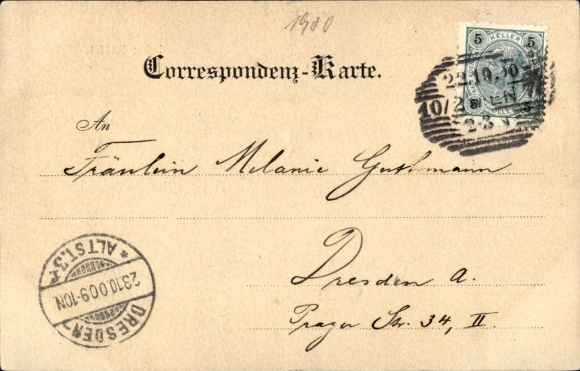 1900
5 HELLER 5
22.10.00
10/2 EN
2-3 N
5
Correspondenz-Karte.
An
Fräulein Melanie
Dresden A.
Prager Str. 34, II.
DRESDEN
* ALTST. 3
23.10.00.9-10N.